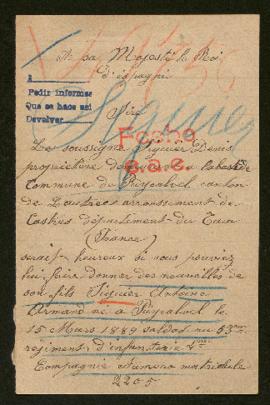 A sa Majesté le Roi
d'espagne
Pedir informes
Que se hace así
Devolver
Sire
Siguier
Fecho
Le soussigné Siguier Denis
propriétaire
Commune de Puycalvel canton
de Lautrec arrondissement de
Castres département du Tarn
(France)
serait heureux si vous pouviez
lui faire donner des nouvelles de
son fils Siguier Antoine
Armand né à Puycalvel le
15 Mars 1889 soldat au 53me
régiment d'infanterie 4me
Compagnie Numero matricule
2205